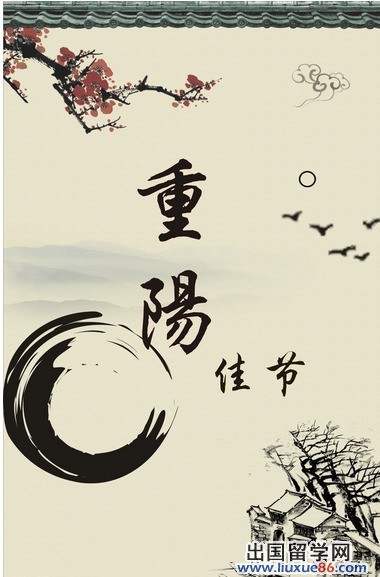 重
陽
佳节
出国留学网
www.liuxue86.com